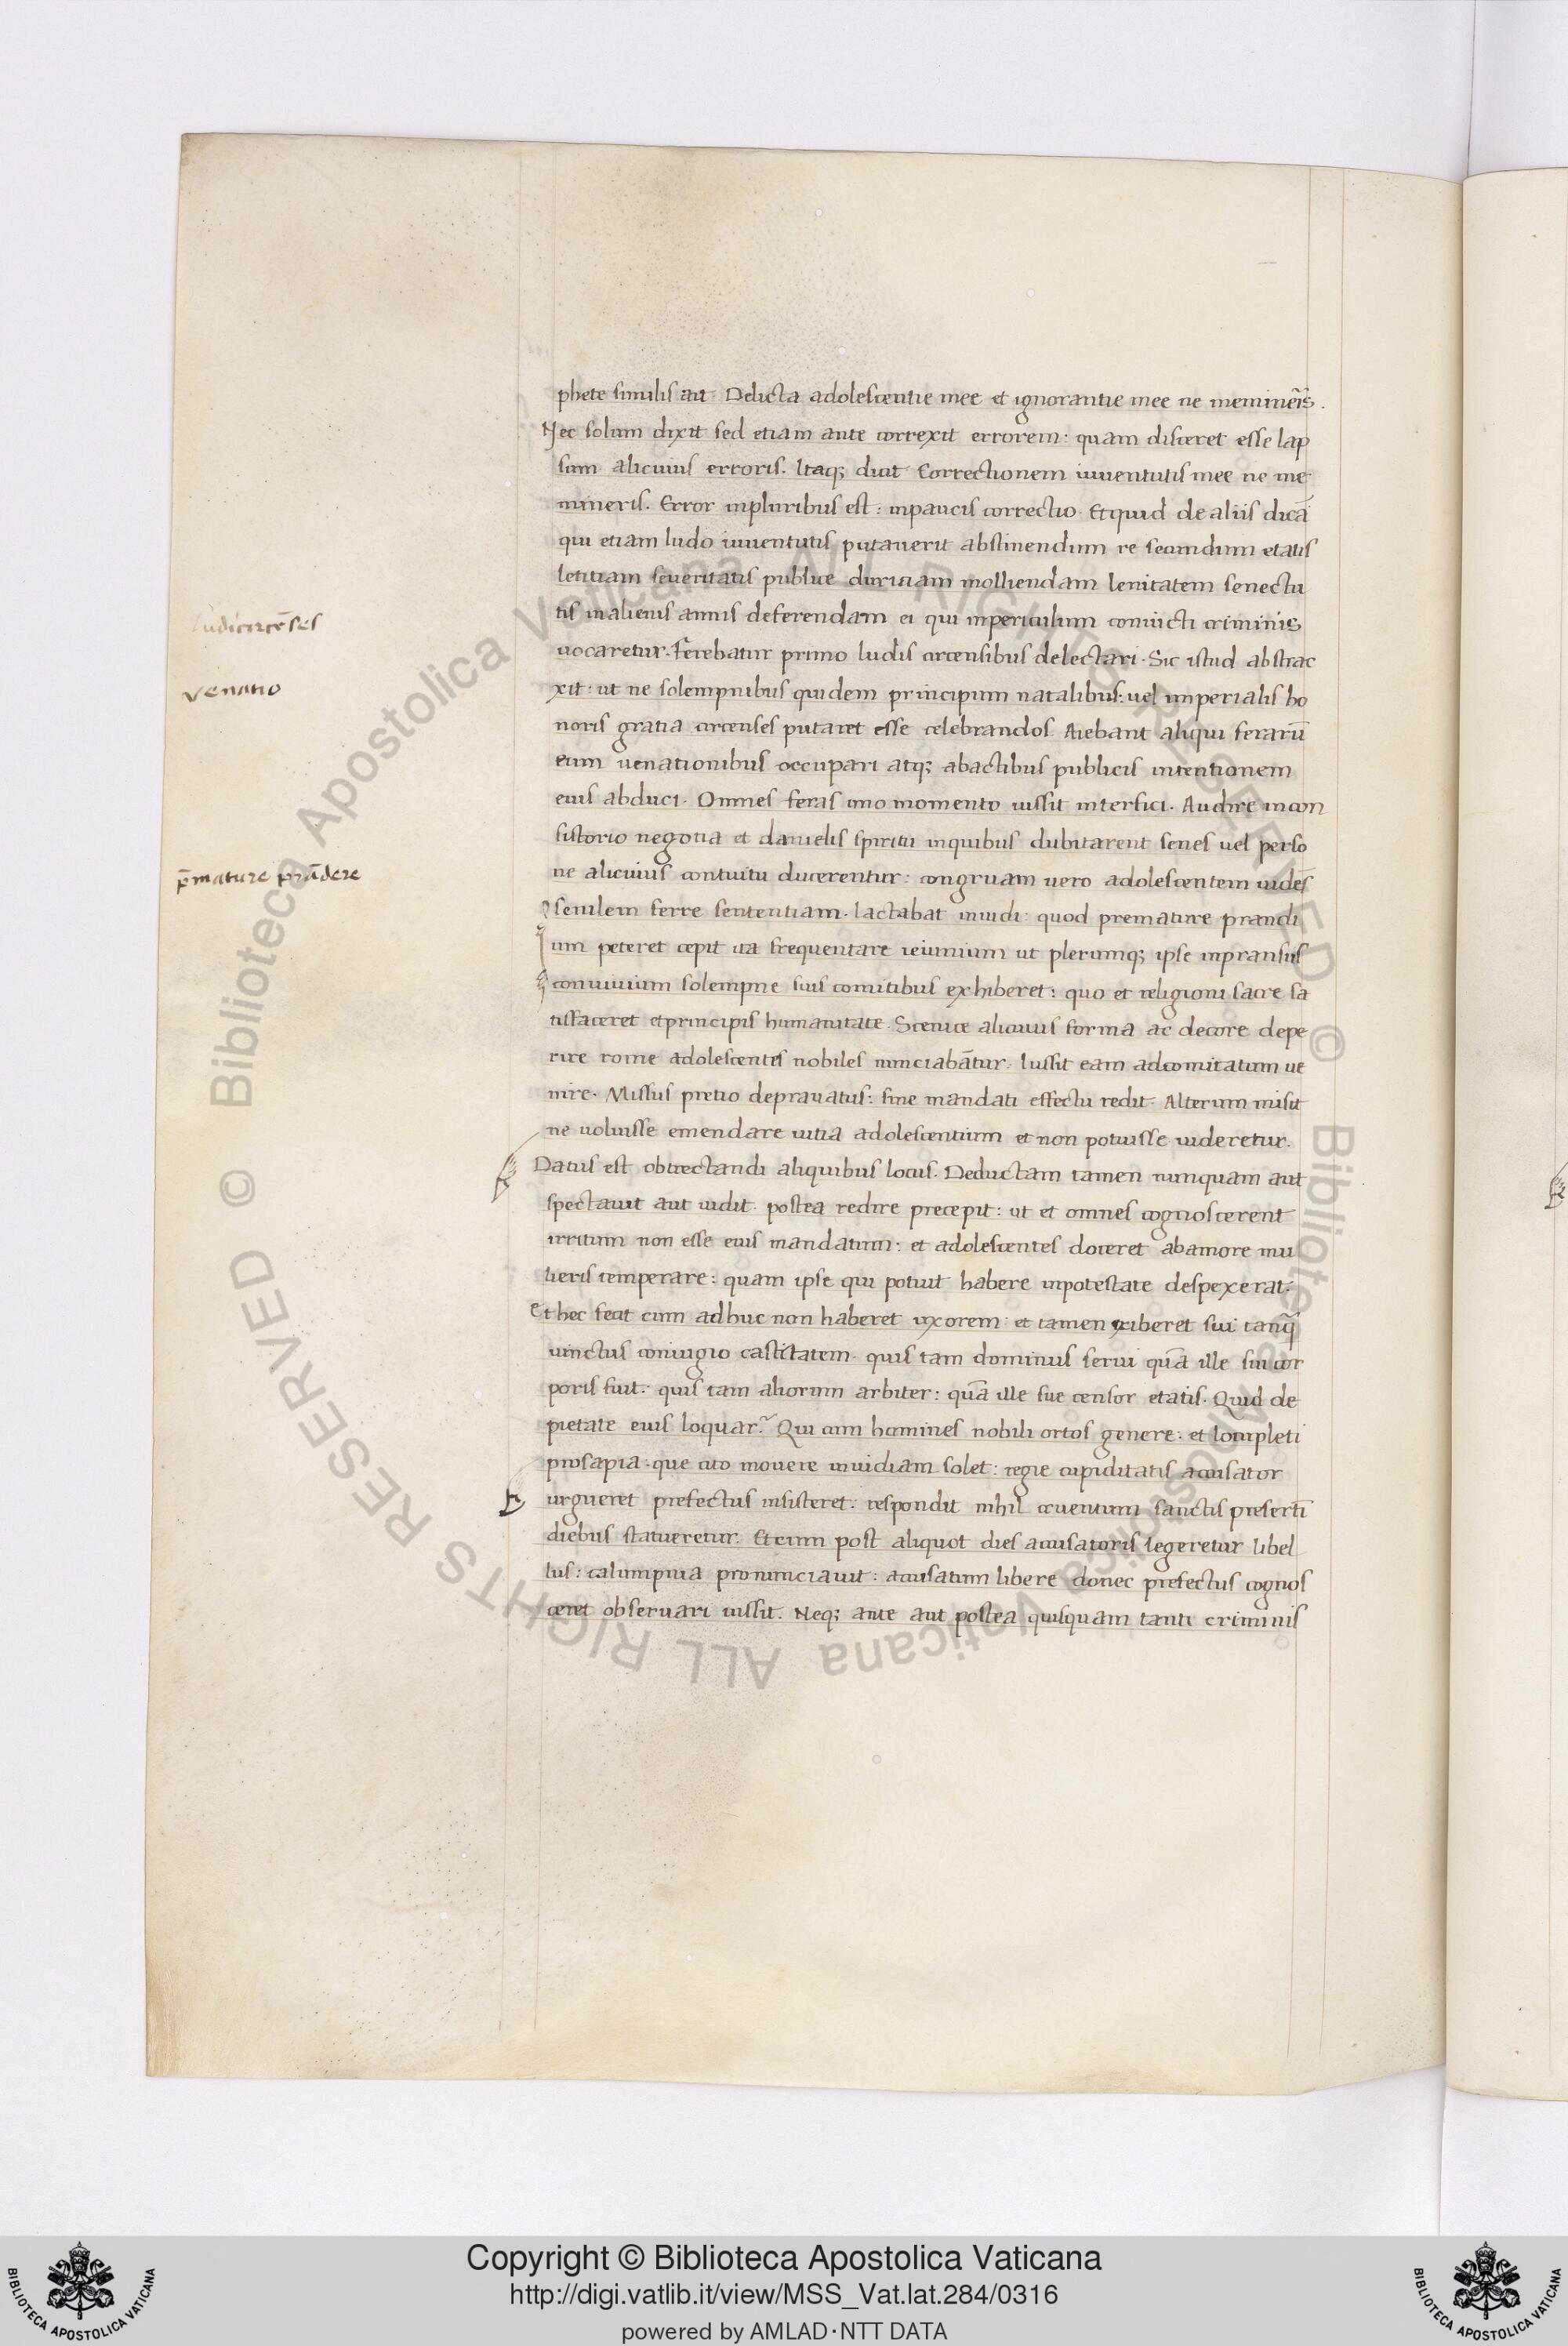 phete similis ait. Delicta adolescentie mee et ignorantie mee ne meminer̃is.
Nec solum dixit sed etiam ante correxit errorem: quam disceret esse lap
sum alicuius erroris. Itaq; dicit Correctionem iuuentutis mee ne me
mineris. Error inpluribus est: inpaucis correctio. Etquid de aliis dicā
qui etiam ludo iuuentutis putauerit abstinendum re secundum etatis
letitiam seueritatis publice duritiam molliendam lenitatem senectu
tis inalienis annis deferendam ei qui inpericulum conuicti criminis
uocaretur. Ferebatur primo ludis circensibus delectari. Sic istud abstrac
xit: ut ne solempnibus quidem principum natalibus: uel imperialis ho
noris gratia circenses putaret esse celebrandos. Aiebant aliqui ferarū
eum uenationibus occupari atq; abactibus publicis intentionem
eius abduci. Omnes feras uno momento iussit interfici. Audire incon
sistorio negotia et danielis spiritu inquibus dubitarent senes uel perso
ne alicuius contuitu ducerentur: congruam uero adolescentem uides
senilem ferre sententiam. Iactabat inuidi: quod premature prandi
um peteret cepit ita frequentare ieiunium ut plerumq; ipse inpransus
conuiuium solempne suis comitibus exhiberet: quo et religioni sacre sa
tisfaceret etprincipis humanitate. Scenice alicuius forma ac decore depe
rire rome adolescentes nobiles nunciabātur. Iussit eam adcomitatum ue
nire. Missus pretio deprauatus: sine mandati effectu redit. Alterum misit
ne uoluisse emendare uitia adolescentium et non potuisse uideretur.
Datus est obtrectandi aliquibus locus. Deductam tamen nunquam aut
spectauit aut uidit. postea redire precepit: ut et omnes cognoscerent
irritum non esse eius mandatum: et adolescentes doceret abamore mu
lieris temperare: quam ipse qui potuit habere inpotestate despexerat.
Et hec fecit cum adhuc non haberet uxorem: et tamen exiberet sui tanq̃
uinctus coniugio castitatem. quis tam dominus serui quā ille sui cor
poris fuit: quis tam aliorum arbiter: quā ille sue censor etatis. Quid de
pietate eius loquar? Qui cum homines nobili ortos genere. et locupleti
prosapia. que cito mouere inuidiam solet: regie cupiditatis accusator
urgueret prefectus insisteret: respondit nihil cruentum sanctis preserti̅
diebus statueretur. Etcum post aliquot dies accusatoris legeretur libel
lus: calumpnia pronunciauit: accusatum libere donec prefectus cognos
ceret obseruari iussit. Neq; ante aut postea quisquam tanti criminis
ludicircēses
venatio
p̄mature prādere
Copyright © Biblioteca Apostolica Vaticana
http://digi.vatlib.it/view/MSS_Vat.lat.284/0316
powered by AMLAD·NTT DATA
BIBLIOTECA APOSTOLICA VATICANA
BIBLIOTECA APOSTOLICA VATICANA
© Biblioteca Apostolica Vaticana ALL RIGHTS RESERVED © Biblioteca Apostolica Vaticana ALL RIGHTS RESERVED